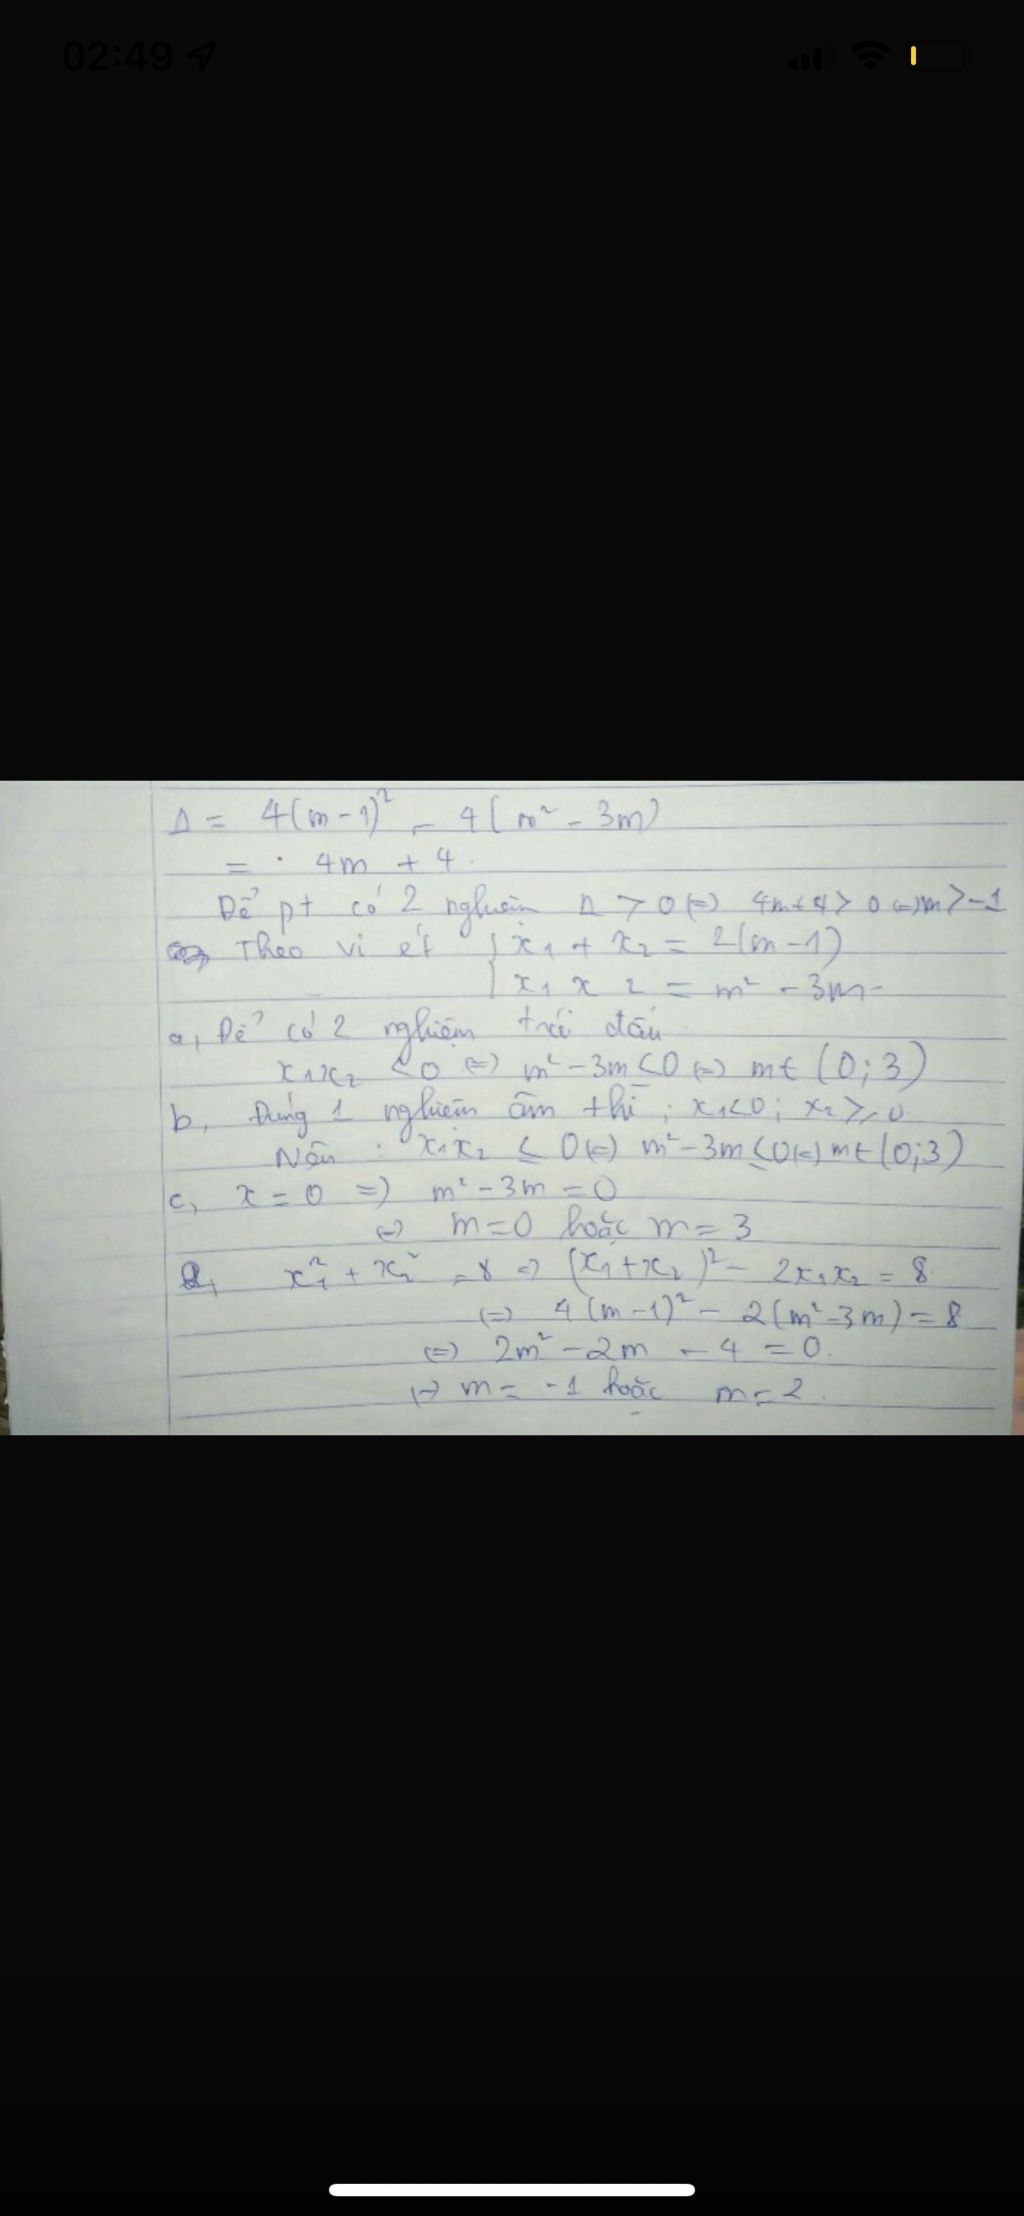 02:49
Δ = 4(m-1)² - 4(m² - 3m)
= 4m + 4.
Để pt có 2 nghiệm Δ > 0 (=) 4m+4 > 0 (=) m > -1
Theo vi ét { x₁ + x₂ = 2(m-1)
x₁ x 2 = m² - 3m
a, Để có 2 nghiệm trái dấu
x₁x₂ < 0 (=) m² - 3m < 0 (=) m ∈ (0; 3)
b, Đúng 1 nghiệm âm thì : x₁<0 ; x₂ ≥ 0
Nên : x₁x₂ ≤ 0 (=) m² - 3m ≤ 0 (=) m ∈ (0;3)
c, x = 0 =) m² - 3m = 0
(=) m = 0 hoặc m = 3
x₁² + x₂² = 8 =) (x₁+x₂)² - 2x₁x₂ = 8
(=) 4(m-1)² - 2(m² - 3m) = 8
(=) 2m² - 2m - 4 = 0.
(=) m = -1 hoặc m = 2.